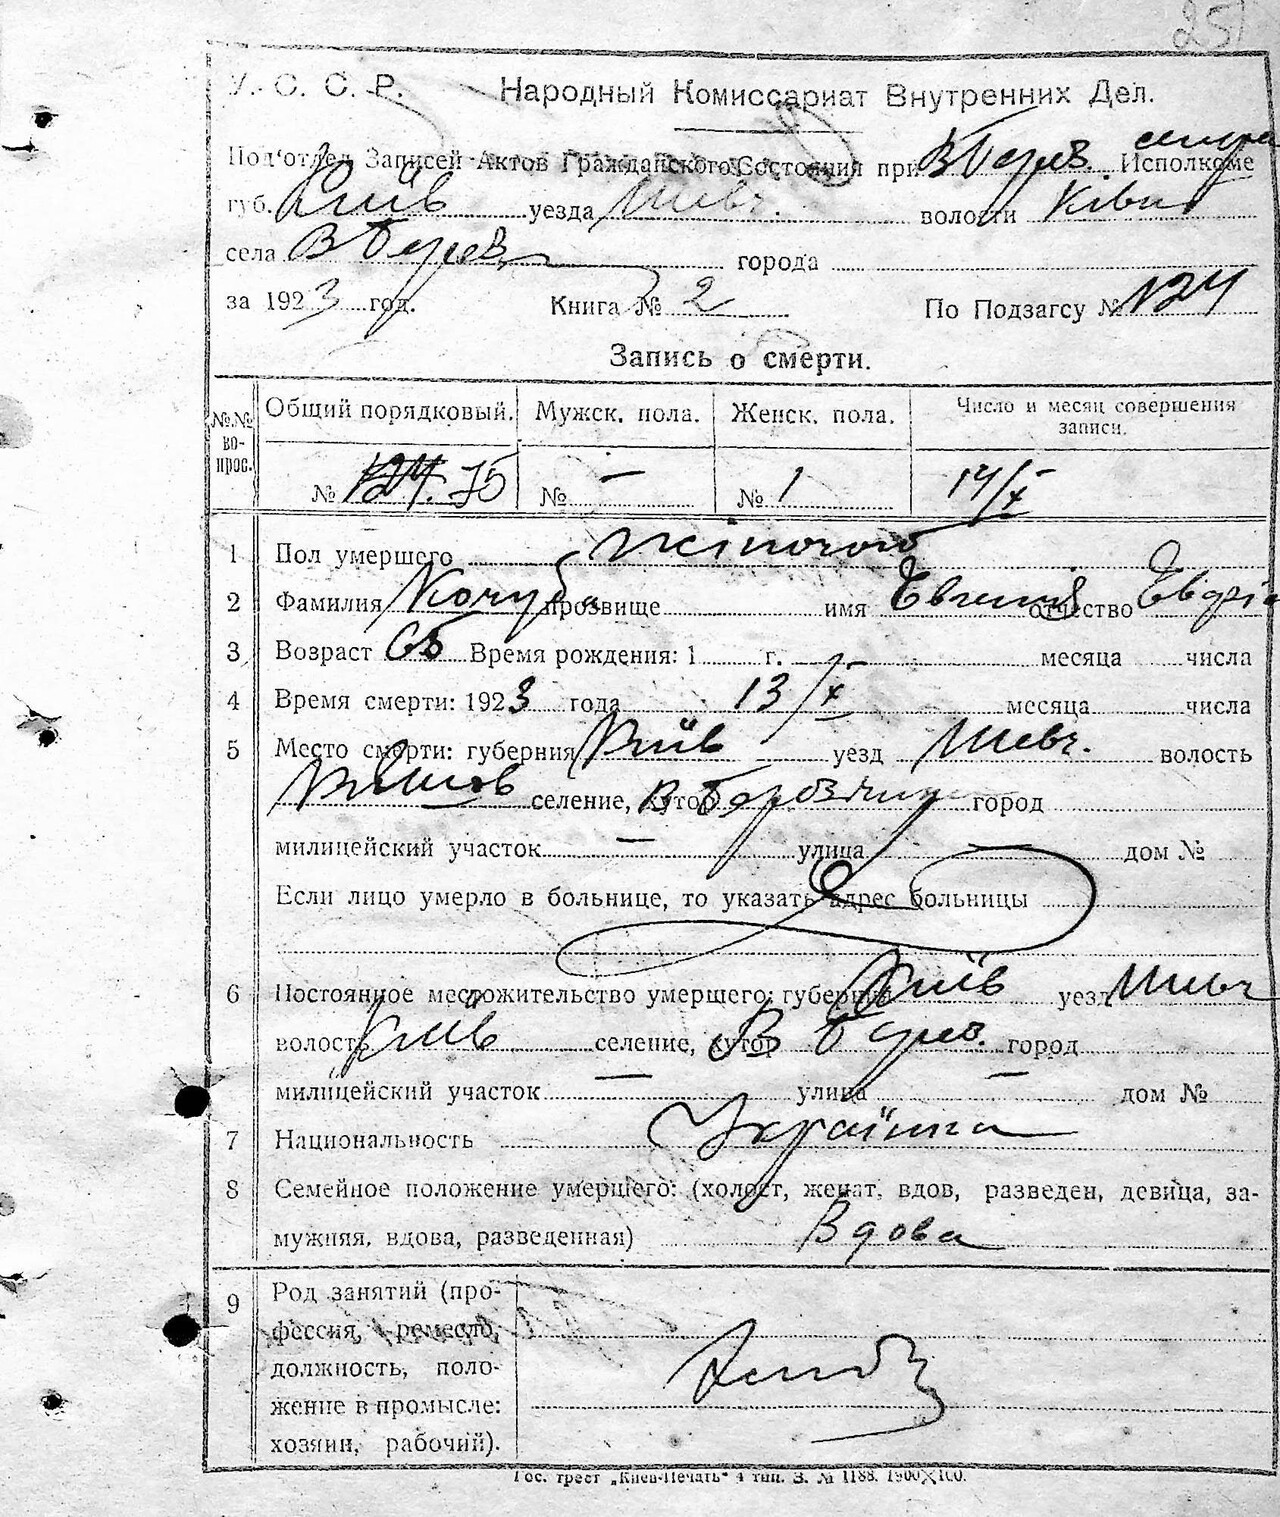 251
У. С. С. Р. Народный Комиссариат Внутренних Дел.
Под'отдел Записей Актов Гражданского Состояния при В Берез. Исполкоме
губ. Київ уезда Шевч. волости
села В Берез города
за 1923 год. Книга № 2 По Подзагсу № 124
Запись о смерти.
№.№ вопрос. Общий порядковый. Мужск. пола. Женск. пола. Число и месяц совершения записи.
№ 124. 75 № — № 1 14/X
1 Пол умершего жіночого
2 Фамилия Кочуб прозвище имя Евгенія отчество
3 Возраст 65 Время рождения: 1 г. месяца числа
4 Время смерти: 1923 года 13/X месяца числа
5 Место смерти: губерния Київ уезд Шевч. волость
селение, хутор В Березян город
милицейский участок — улица — дом №
Если лицо умерло в больнице, то указать адрес больницы
6 Постоянное месложительство умершего: губерния Київ уезд Шевч
волость Київ селение, хутор В Берез. город
милицейский участок — улица — дом №
7 Национальность Українка
8 Семейное положение умершего: (холост, женат, вдов, разведен, девица, за-
мужняя, вдова, разведенная) Вдова
9 Род занятий (про-
фессия, ремесло,
должность, поло-
жение в промысле:
хозяин, рабочий).
Гос. трест „Киев-Печать" 4 тип. З. № 1188. 1900×100.